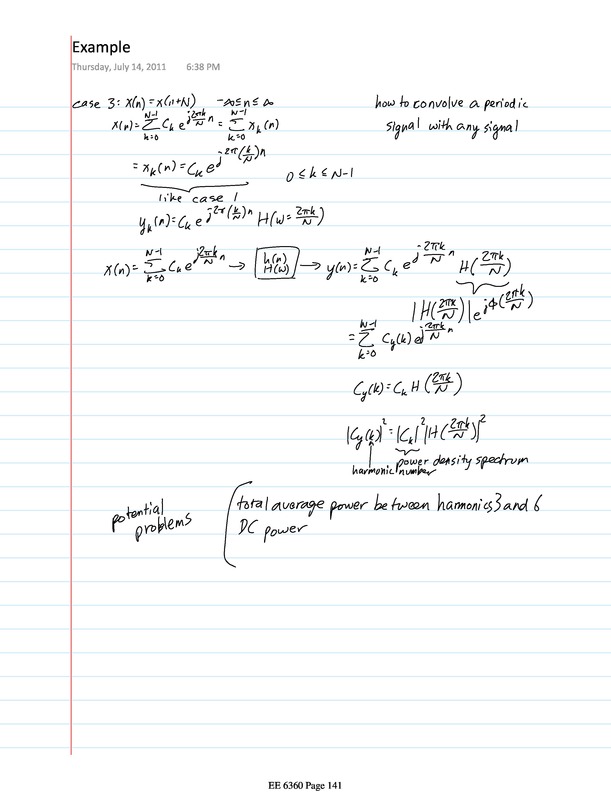 Example
Thursday, July 14, 2011 6:38 PM
case 3: x(n) = x(n+N) -∞ ≤ n ≤ ∞
how to convolve a periodic
signal with any signal
x(n) = Σ_{k=0}^{N-1} C_k e^{j2πk/N n} = Σ_{k=0}^{N-1} x_k(n)
= x_k(n) = C_k e^{j2π(k/N)n} 0 ≤ k ≤ N-1
like case 1
y_k(n) = C_k e^{j2π(k/N)n} H(ω = 2πk/N)
x(n) = Σ_{k=0}^{N-1} C_k e^{j2πk/N n} → h(n) H(ω) → y(n) = Σ_{k=0}^{N-1} C_k e^{j2πk/N n} H(2πk/N)
|H(2πk/N)| e^{jΦ(2πk/N)}
= Σ_{k=0}^{N-1} C_y(k) e^{j2πk/N n}
C_y(k) = C_k H(2πk/N)
|C_y(k)|² = |C_k|² |H(2πk/N)|²
power density spectrum
harmonic number
potential
problems
total average power between harmonics 3 and 6
DC power
EE 6360 Page 141